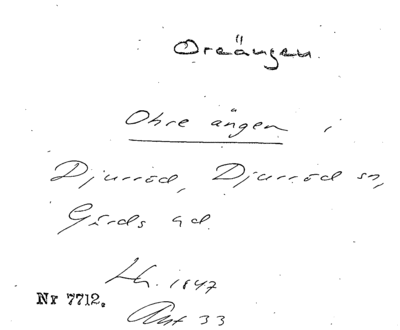 Oreängen.
Ohre ängen i
Djurröd, Djurröd sn,
Gärds hd.
Lh. 1847
Nr 7712.
Akt 33